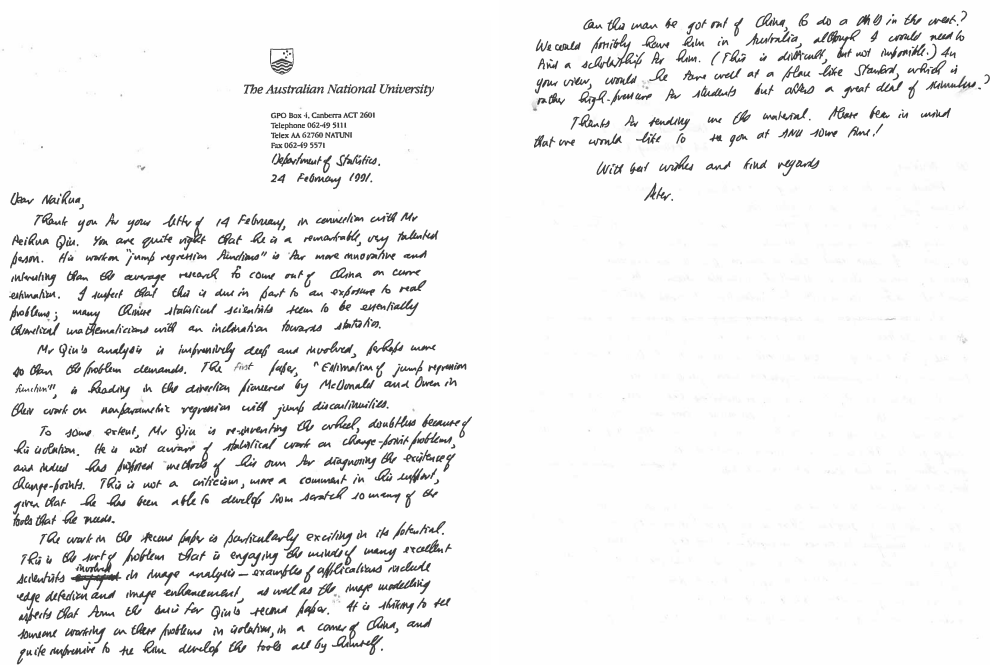 The Australian National University
GPO Box 4, Canberra ACT 2601
Telephone 062-49 5111
Telex AA 62760 NATUNI
Fax 062-49 5571
Department of Statistics.
24 February 1991.
Dear Naihua,
Thank you for your letter of 14 February, in connection with Mr
Peihua Qiu. You are quite right that he is a remarkable, very talented
person. His work on "jump regression functions" is far more innovative and
interesting than the average research to come out of China on curve
estimation. I suspect that this is due in part to an exposure to real
problems; many Chinese statistical scientists seem to be essentially
theoretical mathematicians with an inclination towards statistics.
Mr Qiu's analysis is impressively deep and involved, perhaps more
so than the problem demands. The first paper, "Estimation of jump regression
function", is heading in the direction pioneered by McDonald and Owen in
their work on nonparametric regression with jump discontinuities.
To some extent, Mr Qiu is re-inventing the wheel, doubtless because of
his isolation. He is not aware of statistical work on change-point problems,
and indeed has proposed methods of his own for diagnosing the existence of
change-points. This is not a criticism, more a comment in his support,
given that he has been able to develop from scratch so many of the
tools that he needs.
The work in the second paper is particularly exciting in its potential.
This is the sort of problem that is engaging the minds of many excellent
scientists involved in image analysis — examples of applications include
edge detection and image enhancement, as well as the image modelling
aspects that form the basis for Qiu's second paper. It is striking to see
someone working on these problems in isolation, in a corner of China, and
quite impressive to see him develop the tools all by himself.
Can this man be got out of China, to do a PhD in the west?
We could possibly have him in Australia, although I would need to
find a scholarship for him. (This is difficult, but not impossible.) In
your view, would he fare well at a place like Stanford, which is
rather high-pressure for students but offers a great deal of stimulus?
Thanks for sending me the material. Please bear in mind
that we would like to see you at ANU some time!
With best wishes and kind regards
Peter.